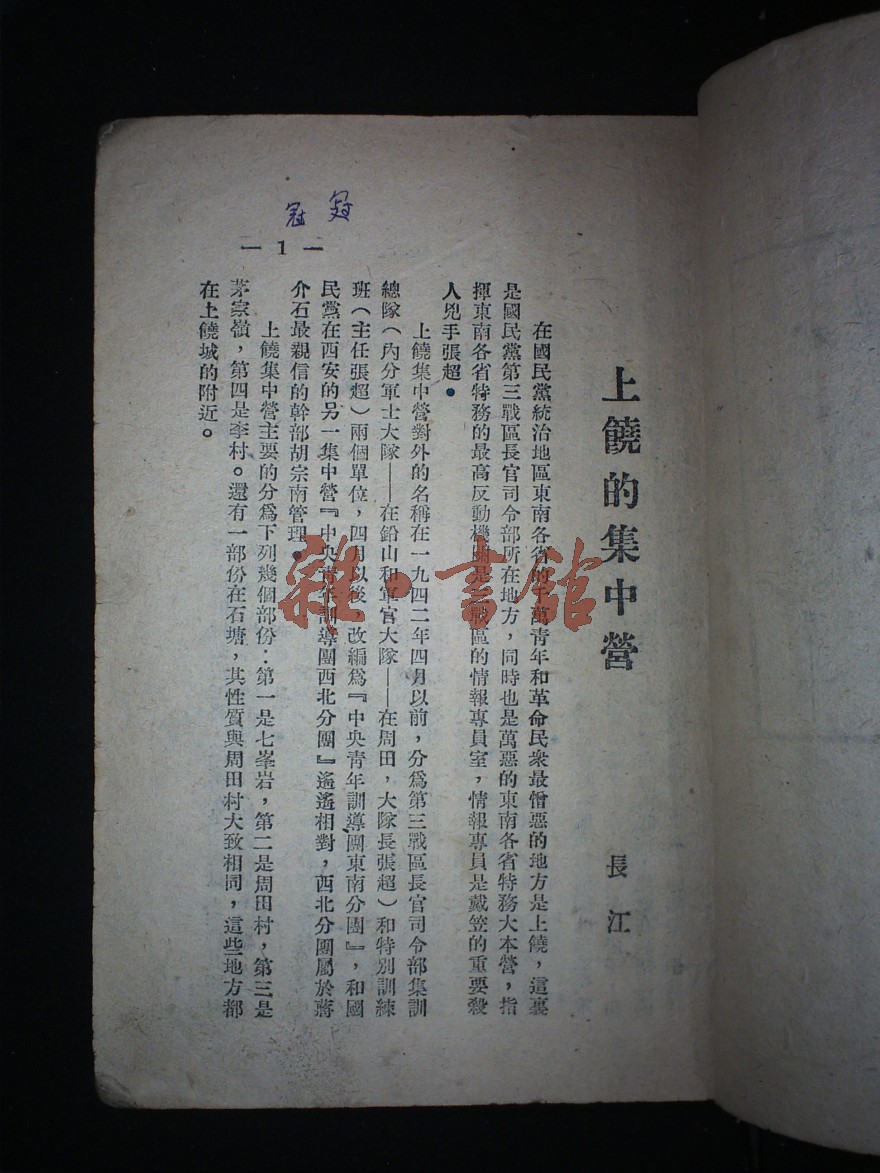 上饒的集中營
長江
在國民黨統治地區東南各省的千萬青年和革命民衆最憎惡的地方是上饒，這裏
是國民黨第三戰區長官司令部所在地方，同時也是萬惡的東南各省特務大本營，指
揮東南各省特務的最高反動機關是三戰區的情報專員室，情報專員是戴笠的重要殺
人兇手張超。
上饒集中營對外的名稱在一九四二年四月以前，分爲第三戰區長官司令部集訓
總隊（內分軍士大隊——在鉛山和軍官大隊——在周田，大隊長張超）和特別訓練
班（主任張超）兩個單位，四月以後，改編爲『中央青年訓導團東南分團』，和國
民黨在西安的另一集中營『中央青年訓導團西北分團』遙遙相對，西北分團屬於蔣
介石最親信的幹部胡宗南管理。
上饒集中營主要的分爲下列幾個部份：第一是七峯岩，第二是周田村，第三是
茅家嶺，第四是李村。還有一部份在石塘，其性質與周田村大致相同，這些地方都
在上饒城的附近。
— 1 —
雜·書館